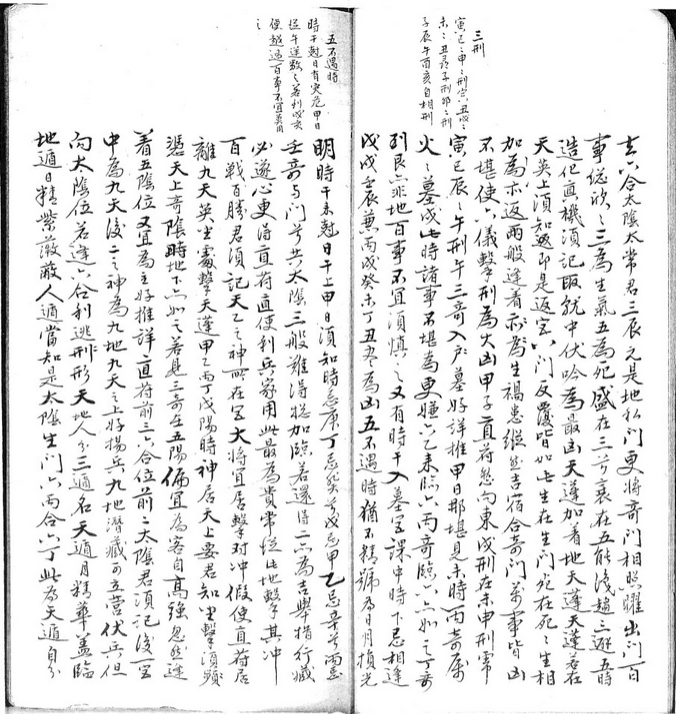 三刑
寅巳巳申申刑寅丑戌戌
未未丑是子刑卯卯刑
子辰午酉亥自相刑
去六合太陰太常君三辰元是地私門更將奇門相照耀出門百
事総欣〻三為生氣五為死盛在三兮衰在五能識趨三避五時
造化真機須記取就中伏吟為最凶天蓬加着地天蓬天蓬若在
天英上須知即是返宮八門反覆皆如此生在生門死在死〻生相
加為返兩般逢着亦為生禍患縱然吉宿合奇門萬事皆凶
不堪使六儀擊刑為大凶甲子直符愁向東戌刑在未申刑
寅巳辰〻午刑午三奇入戶墓好詳推甲日那堪見未時丙奇屬
火〻墓戌此時諸事不堪為更嫌六乙来臨六丙奇臨六六如之丁奇
到艮六非地百事不宜須慎之又有時干入墓宮課中時下忌相逢
戊戌壬辰兼丙戌癸未丁丑尽為凶五不遇時猶不精號為日月損光
五不遇時
時干尅日有灾危甲日
從午逆数之若利戌亥
便超過百事不宜莫用
之
明時干来尅日干上甲日須知時忌庚丁忌癸兮戊忌甲乙忌辛兮丙忌
壬奇与門兮共太陰三般難得総加臨若還得二亦為吉舉措行藏
必遂心更得直符直使利兵家用此最為貴常從此地擊其冲
百戰百勝君須記天乙之神所在宮大將宜居擊对冲假使直符居
離九天英坐處擊天蓬甲乙丙丁戊陽時神居天上要君知坐擊須頻
憑天上奇陰時地下亦如之若見三奇在五陽偏宜為客自高強忽然逢
着五陰位又宜為主好推詳直符前三六合位前二太陰君須記後一宮
中為九天後二之神為九地九天之上好揚兵九地潛藏可立营伏兵但
向太陰位若逢六合利逃刑形天地人分三遁名天遁月精華盖臨
地遁日精紫薇蔽人遁當知是太陰生門六丙合六丁此為天遁自分